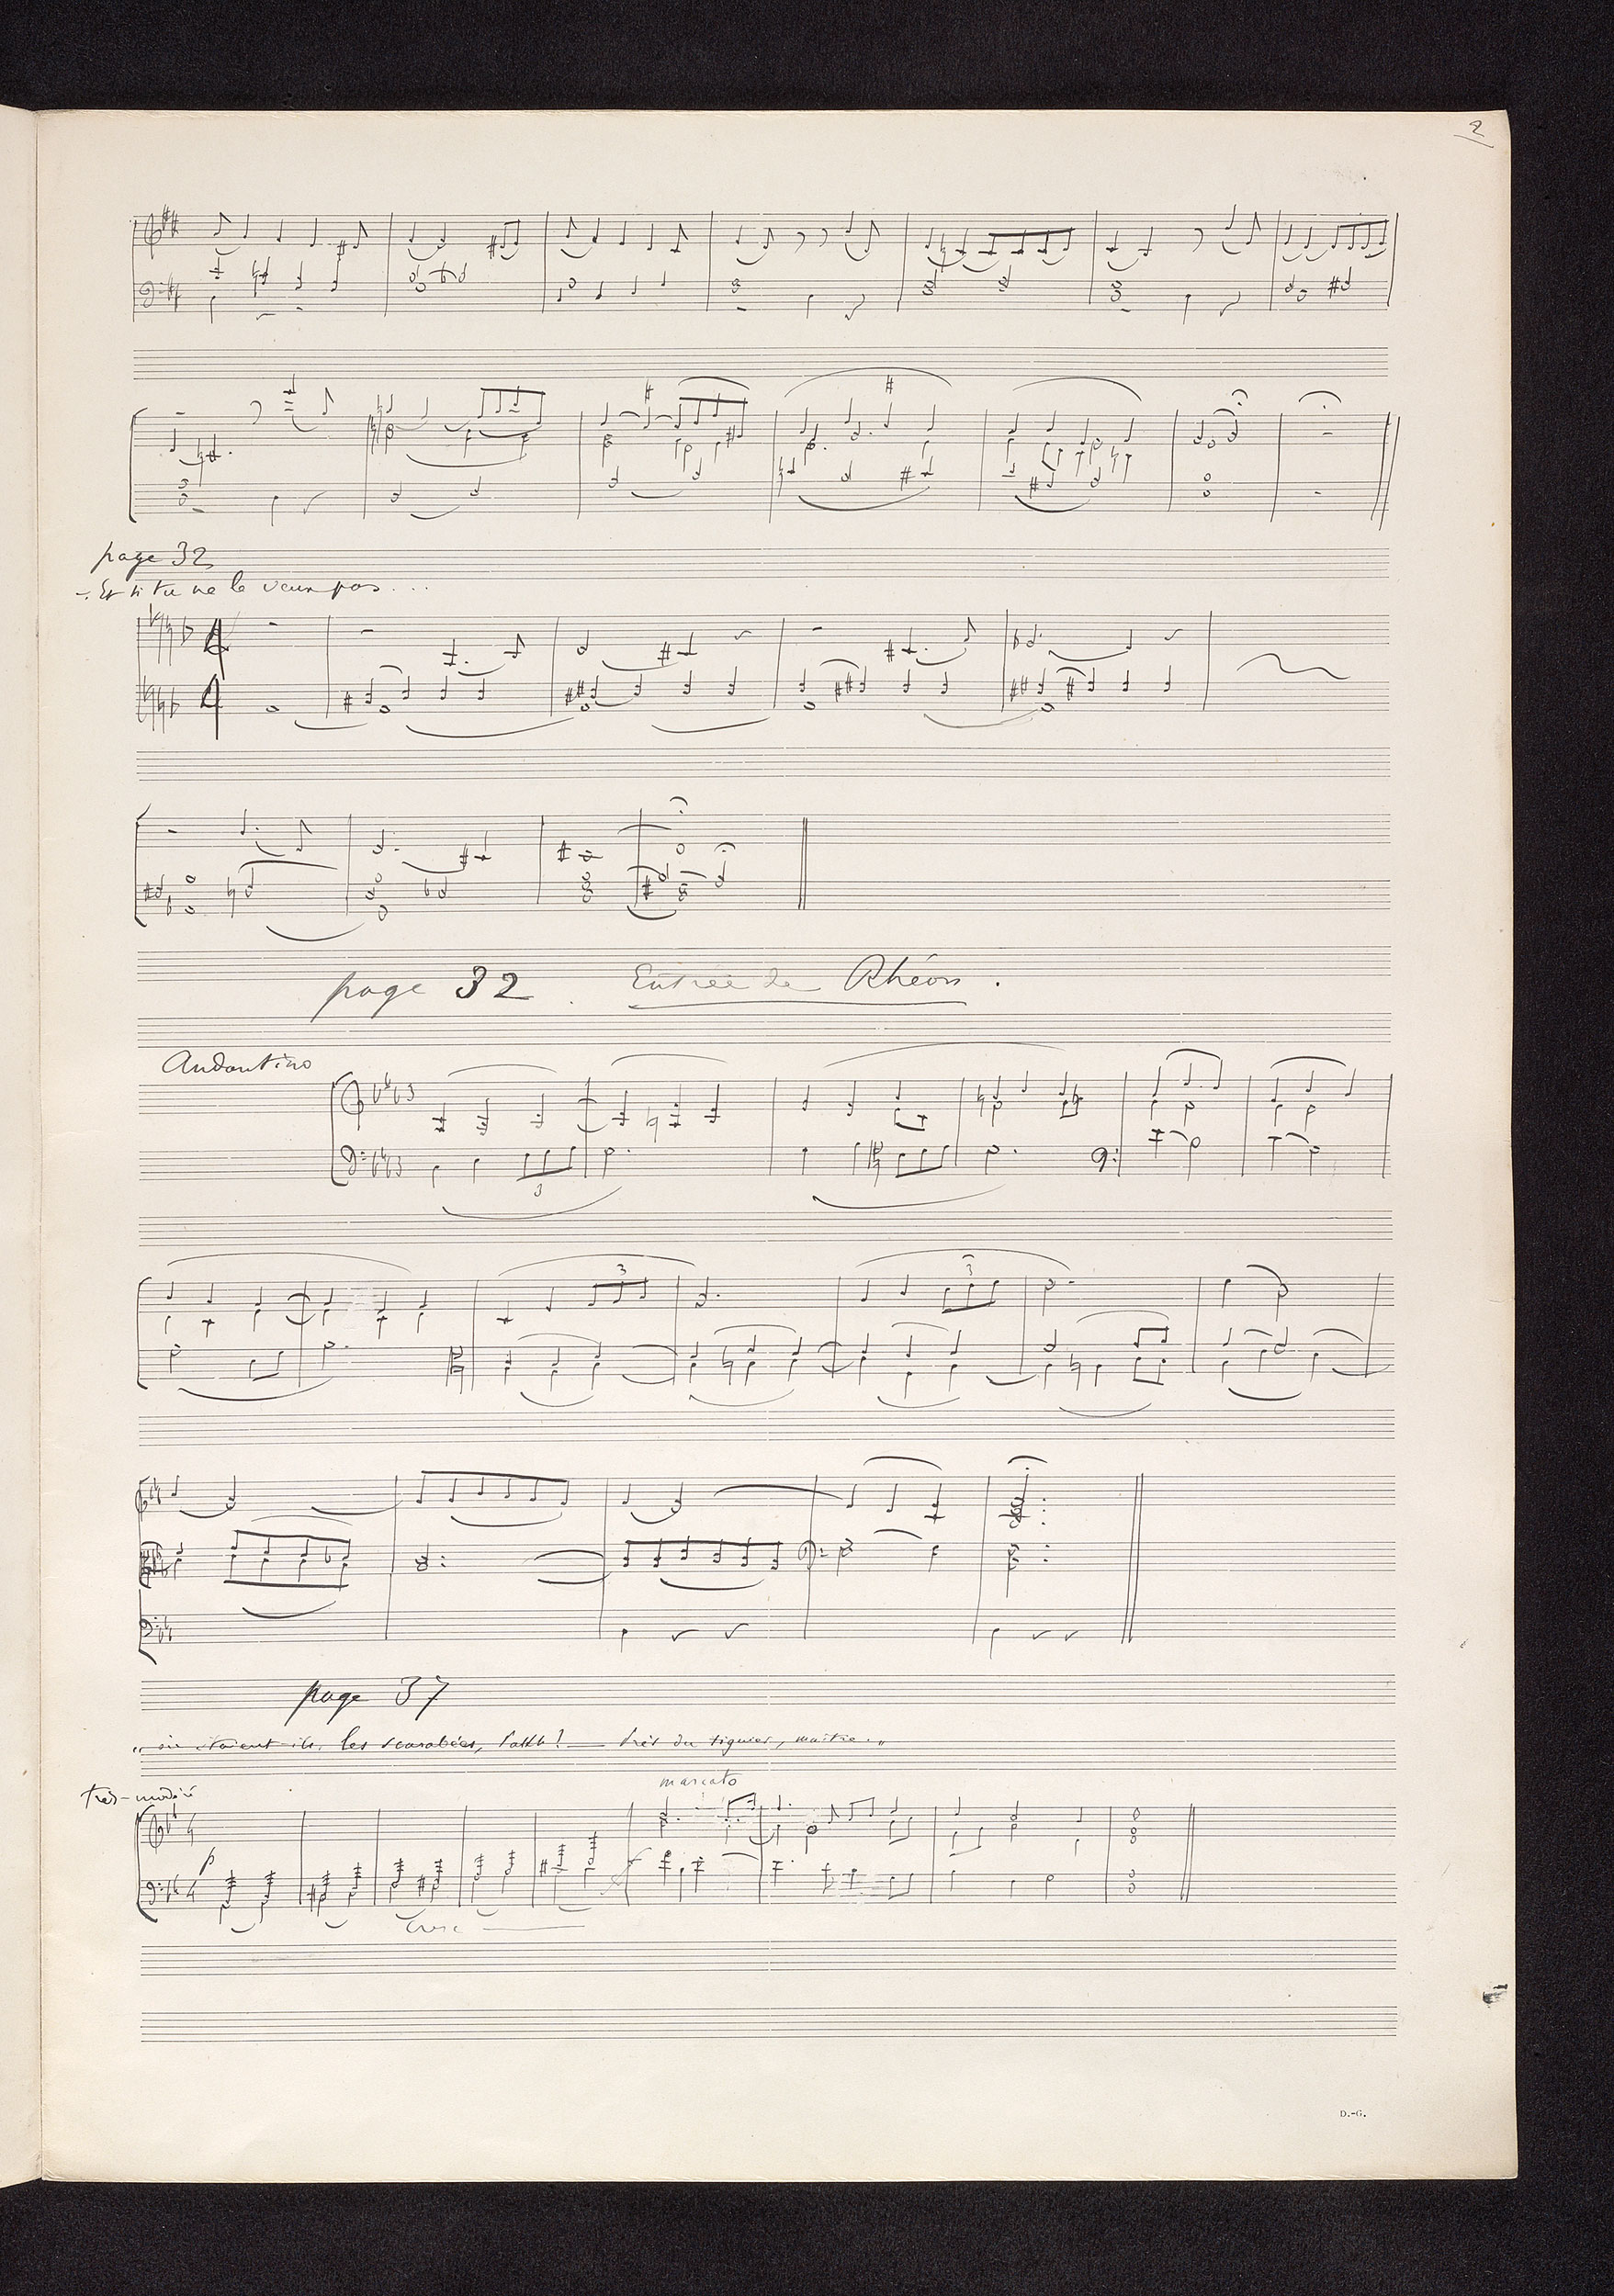 2
page 32
-. Et si tu ne le veux pas...
page 32. Entrée de Rhéon.
Andantino
3
3
3
page 37
„ où étaient-ils, les scarabées, ? — Près du figuier, maître. „
Très-modéré
marcato
p
cresc
D.-G.